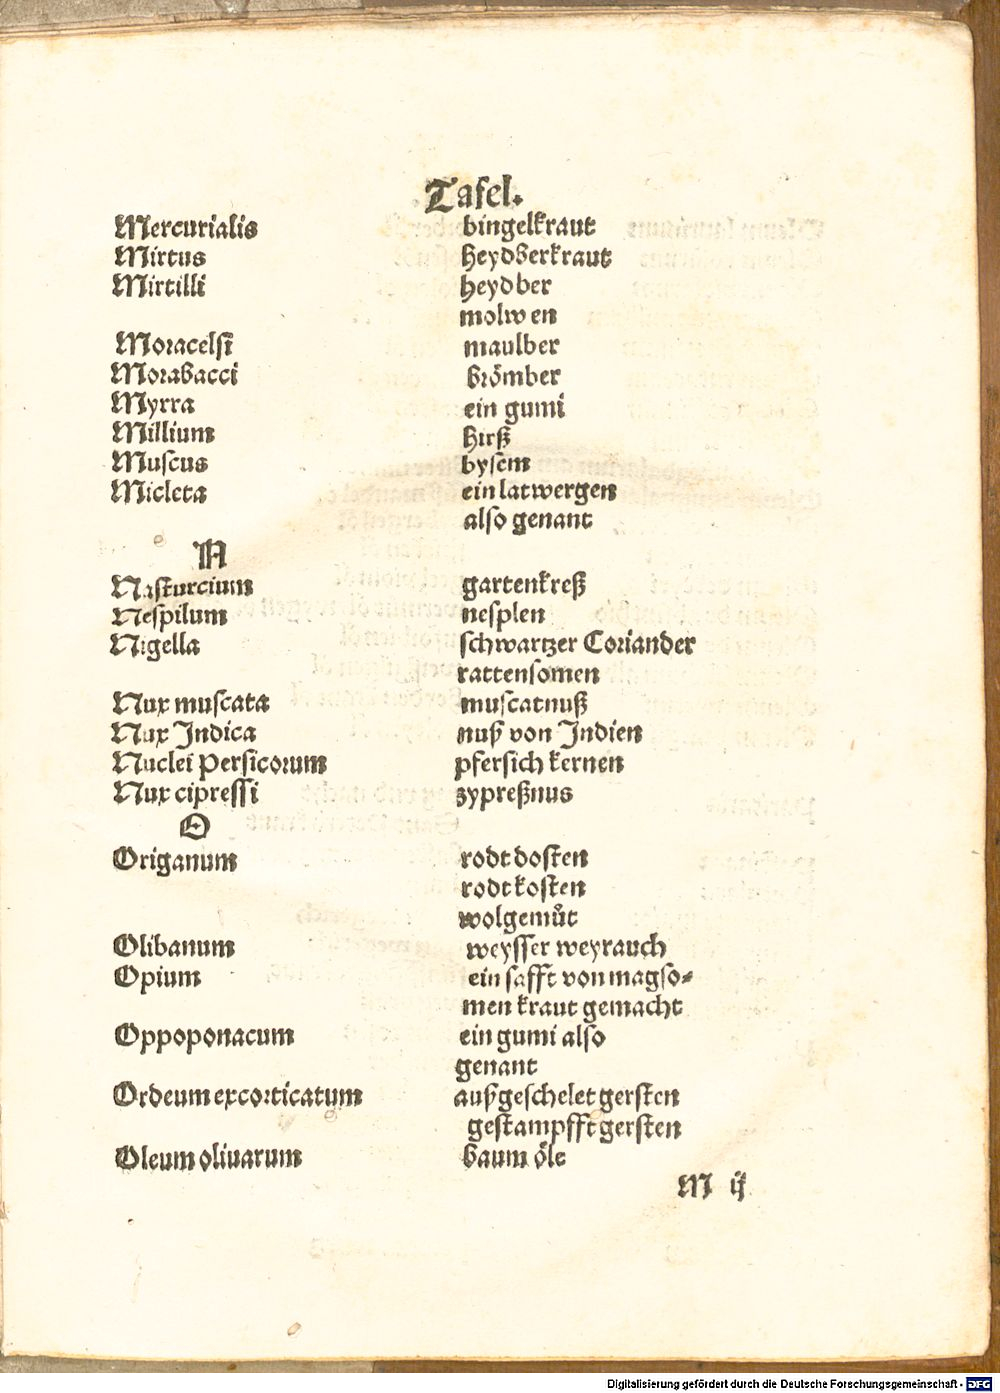 Tafel.
Mercurialis bingelkraut
Mirtus heydberkraut
Mirtilli heydber
molwen
Moracelsi maulber
Morabacci brömber
Myrra ein gumi
Millium hirß
Muscus bysem
Micleta ein latwergen
also genant
N
Nasturcium gartenkreß
Nespilum nesplen
Nigella schwartzer Coriander
rattensomen
Nux muscata muscatnuß
Nux Indica nuß von Indien
Nuclei Persicorum pfersich kernen
Nux cipressi zypreßnus
O
Origanum rodt dosten
rodt kosten
wolgemůt
Olibanum weysser weyrauch
Opium ein safft von magso⸗
men kraut gemacht
Oppoponacum ein gumi also
genant
Ordeum excorticatum außgeschelet gersten
gestampfft gersten
Oleum oliuarum baum öle
M ij
Digitalisierung gefördert durch die Deutsche Forschungsgemeinschaft - DFG